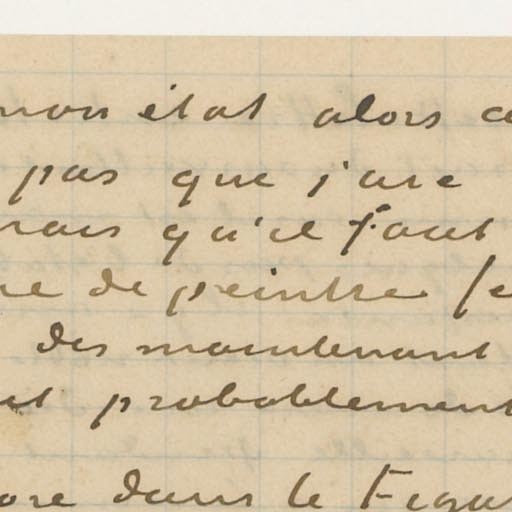 mon état alors c
pas que j'aie
mais qu'il faut
de peintre je
des maintenant
et probablement
dans le Figar